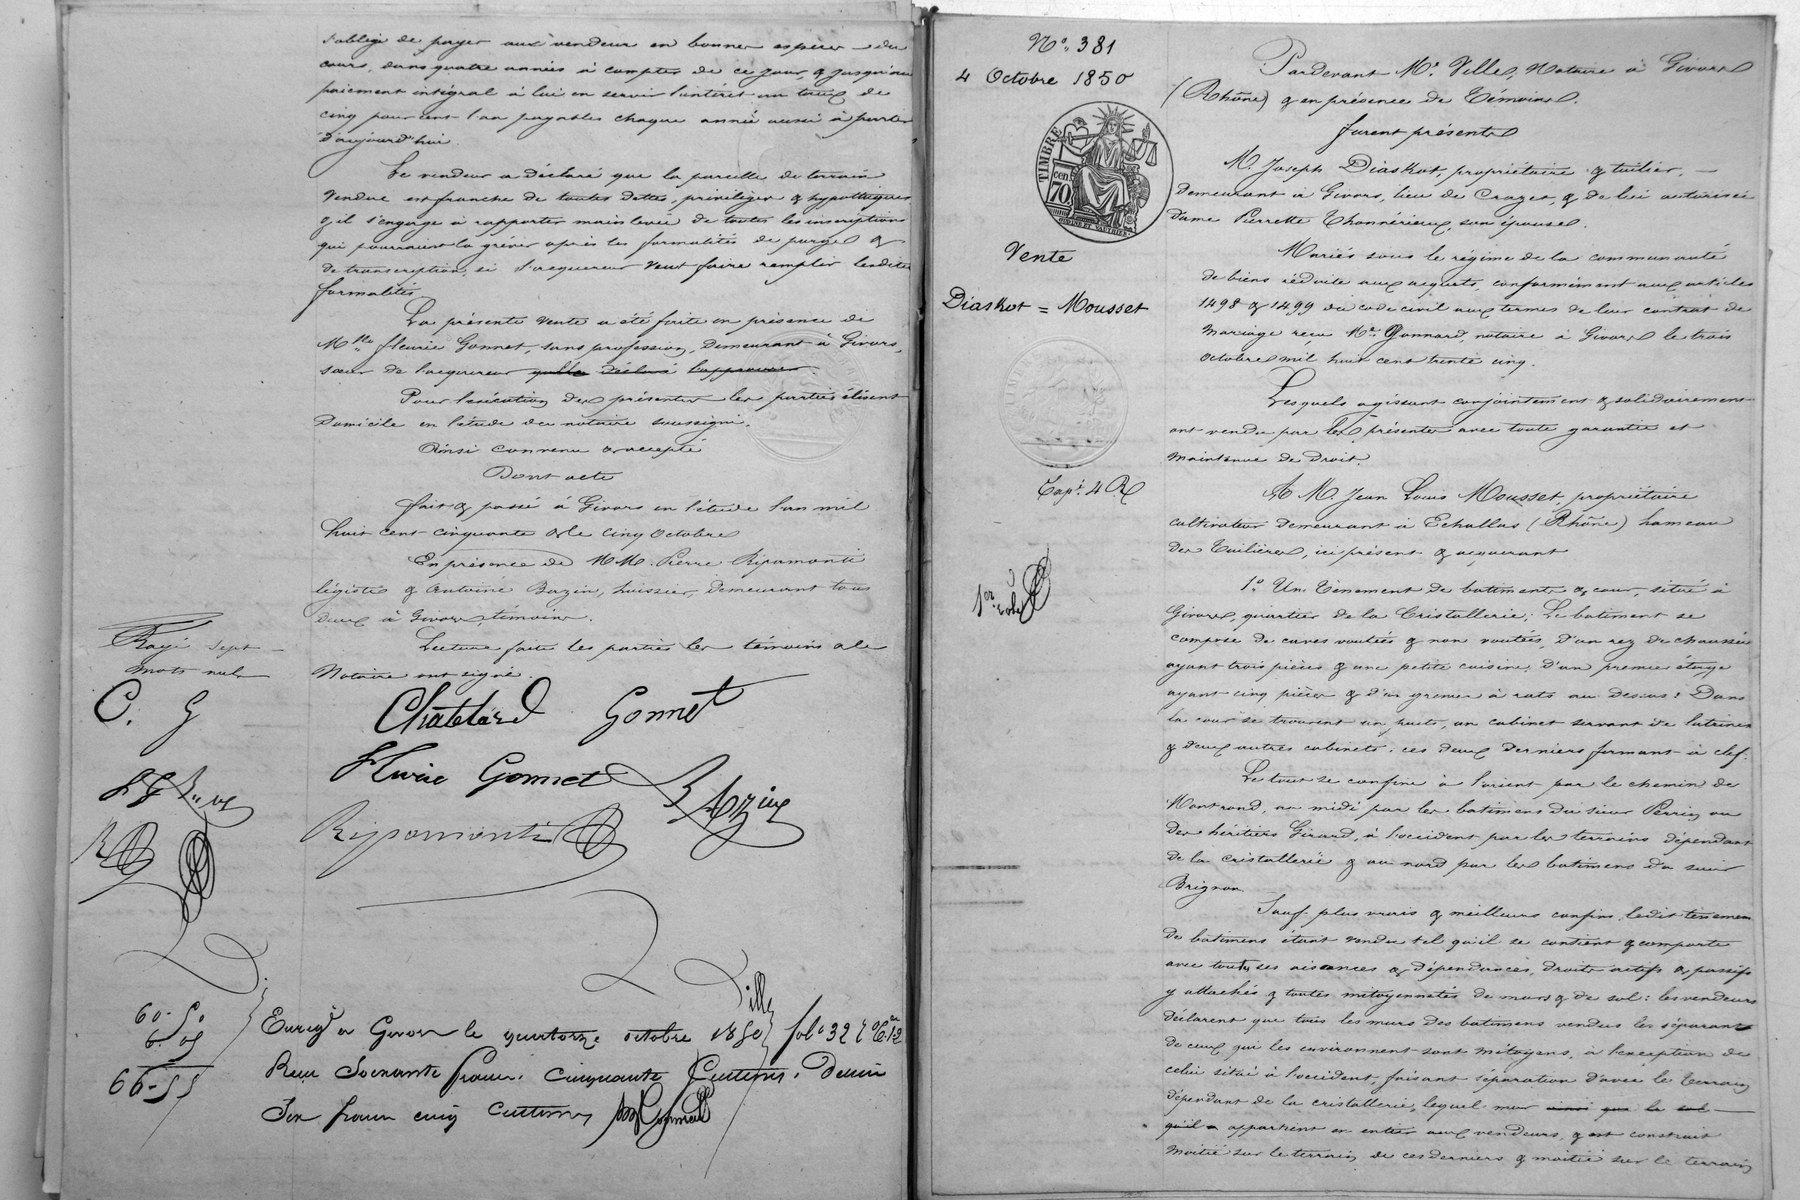 s'oblige de payer aux vendeur en bonnes espèces du
cours, dans quatre années à compter de ce jour, & jusqu'au
paiement intégral à lui en servir l'intérêt au taux de
cinq pour cent l'an payables chaque année aussi à partir
d'aujourd'hui.
Le vendeur a déclaré que la parcelle de terrain
vendue est franche de toutes dettes, privilèges & hypothèques
& il s'engage à rapporter main levée de toutes les inscriptions
qui pourraient la gréver après les formalités de purge &
de transcription, si l'acquereur veut faire remplir lesdites
formalités
La présente vente a été faite en présence de
Mlle fleurie Gonnet, sans profession, demeurant à Givors,
sœur de l'acquereur qu'elle déclare l'approuver.
Pour l'exécution des présentes les parties élisent
Domicile en l'étude du notaire soussigné.
Ainsi convenu & accepté
Dont acte
fait & passé à Givors en l'étude l'an mil
huit cent cinquante & le cinq Octobre
En présence de MM. Pierre Ripamonti
légiste & Antoine Bazin, huissier, demeurant tous
deux à Givors, témoins.
Lecture faite les parties les témoins & le
Notaire ont signé.
Rayé sept
mots nuls
C. G
Chatelard Gonnet
Flurie Gonnet Bazin
Ripamonti
Ville
60-50
6-05
66-55
Enregé a Givors le quatorze octobre 1850 folo 32
Reçu Soixante francs cinquante Centimes. Decime
Six francs cinq centimes
No. 381
4 Octobre 1850
TIMBRE
cen. 70
Vente
Diaskot = Mousset
Expé 4 R
1er role
Pardevant Me. Ville, Notaire à Givors
(Rhône) & en présence de Témoins.
furent présents
M. Joseph Diaskot, propriétaire & tuilier,
demeurant à Givors, lieu de Crozes, & de lui autorisée
dame Pierrette Thonnérieux, son épouse.
Mariés sous le régime de la communauté
de biens réduite aux acquets, conformément aux articles
1498 & 1499 du code civil aux termes de leur contrat de
mariage reçu Me. Gonnard, notaire à Givors le trois
octobre mil huit cent trente cinq.
Lesquels agissant conjointement & solidairement
ont vendu par les présentes avec toute garantie et
maintenue de droit.
A M. Jean Louis Mousset, propriétaire
cultivateur demeurant à Echallas (Rhône) hameau
des Tuilières, ici présent & acquerant
1o. Un Ténement de batiments & cour, situé à
Givors, quartier de la Cristallerie; Le batiment se
compose de caves voutées & non voutées, d'un rez de chaussée
ayant trois pièces & une petite cuisine, d'un premier étage
ayant cinq pièces & d'un grenier à rats au dessus: Dans
la cour se trouvent un puits, un cabinet servant de latrines
& deux autres cabinets; ces deux derniers fermant à clef.
Le tout se confine à l'orient par le chemin de
Montrond, au midi par les batimens du sieur Perrin ou
des héritiers Girard, à l'occident par les terrains dépendant
de la cristallerie & au nord par les batimens du sieur
Brignon.
Sauf plus vrais & meilleurs confins, ledit tènement
de batimens étant vendu tel qu'il se contient & comporte
avec toutes ses aisances & dépendances, droits actifs & passifs
y attachés & toutes mitoyennetés de murs & de sol: les vendeurs
déclarent que tous les murs des batimens vendus les séparant
de ceux qui les environnent sont mitoyens, à l'exception de
celui situé à l'occident, faisant séparation d'avec le terrain
dépendant de la cristallerie, lequel mur ainsi que le sol
qu'il a appartient en entier aux vendeurs, & est construit
moitié sur le terrain de ces derniers & moitié sur le terrain